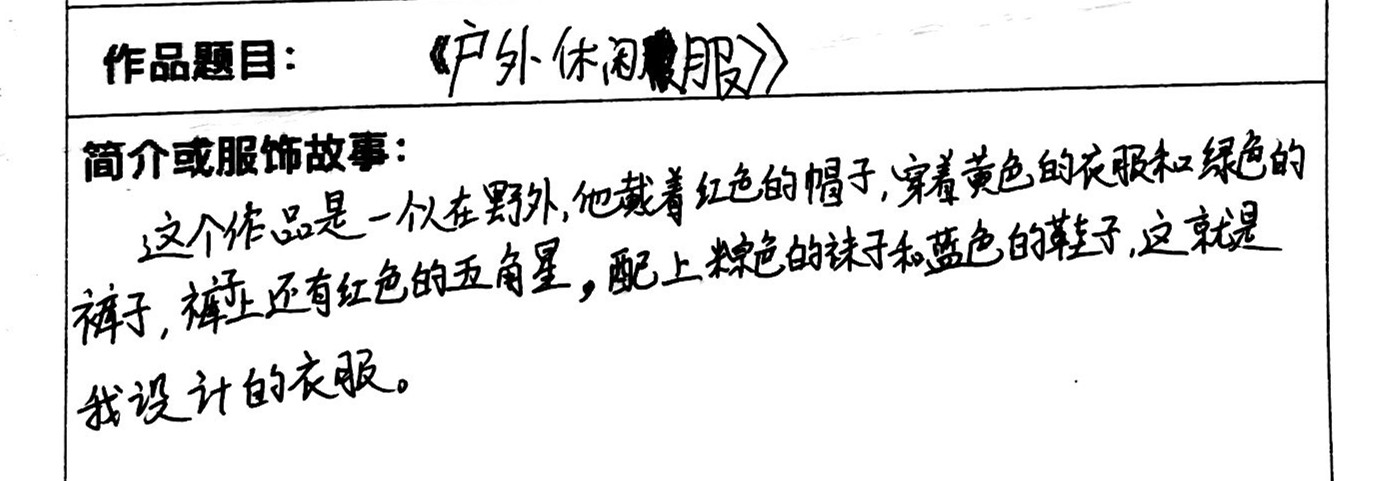 作品题目：《户外休闲服》
简介或服饰故事：
这个作品是一个人在野外，他戴着红色的帽子，穿着黄色的衣服和绿色的
裤子，裤子上还有红色的五角星，配上粽色的袜子和蓝色的鞋子，这就是
我设计的衣服。